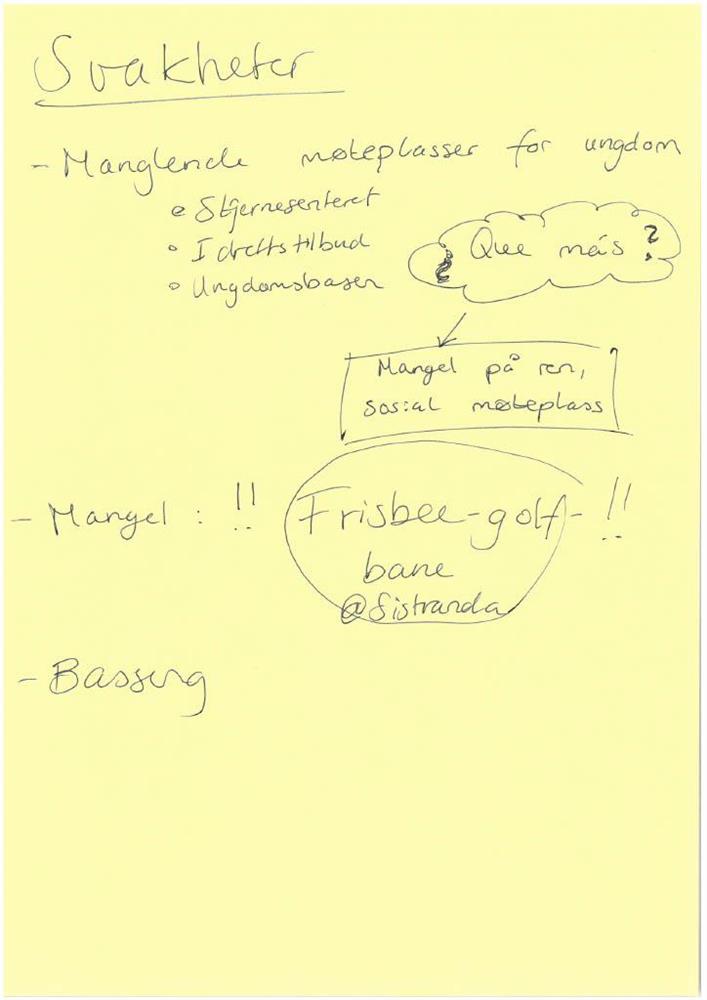 Svakheter
- Manglende møteplasser for ungdom
• Stjernesenteret
• Idrettstilbud
• Ungdomsbasen
¿ Que más ?
Mangel på ren,
sosial møteplass
- Mangel : !! Frisbee-golf- !!
bane
@Sistranda
- Basseng